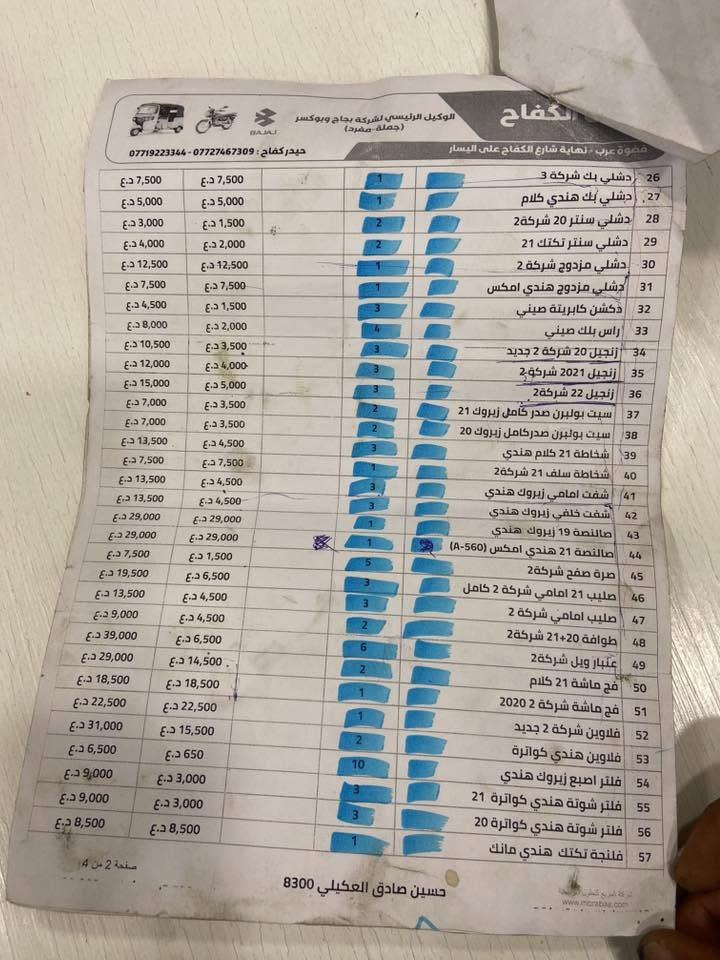 الكفاح
الوكيل الرئيسي لشركة بجاج وبوكسر
(جملة-مفرد)
BAJAJ
فضوة عرب - نهاية شارع الكفاح على اليسار
حيدر كفاح : 07727467309 - 07719223344
26 دشلي بك شركة 3 1 7,500 د.ع 7,500 د.ع
27 دشلي بك هندي كلام 1 5,000 د.ع 5,000 د.ع
28 دشلي سنتر 20 شركة2 2 1,500 د.ع 3,000 د.ع
29 دشلي سنتر تكتك 21 2 2,000 د.ع 4,000 د.ع
30 دشلي مزدوج شركة 2 1 12,500 د.ع 12,500 د.ع
31 دشلي مزدوج هندي امكس 1 7,500 د.ع 7,500 د.ع
32 دكشن كابريتة صيني 3 1,500 د.ع 4,500 د.ع
33 راس بلك صيني 4 2,000 د.ع 8,000 د.ع
34 زنجيل 20 شركة 2 جديد 3 3,500 د.ع 10,500 د.ع
35 زنجيل 2021 شركة 2 3 4,000 د.ع 12,000 د.ع
36 زنجيل 22 شركة2 3 5,000 د.ع 15,000 د.ع
37 سيت بولبرن صدر كامل زيروك 21 2 3,500 د.ع 7,000 د.ع
38 سيت بولبرن صدركامل زيروك 20 2 3,500 د.ع 7,000 د.ع
39 شخاطة 21 كلام هندي 3 4,500 د.ع 13,500 د.ع
40 شخاطة سلف 21 شركة2 1 7,500 د.ع 7,500 د.ع
41 شفت امامي زيروك هندي 3 4,500 د.ع 13,500 د.ع
42 شفت خلفي زيروك هندي 3 4,500 د.ع 13,500 د.ع
43 صالنصة 19 زيروك هندي 1 29,000 د.ع 29,000 د.ع
44 صالنصة 21 هندي امكس (A-560) 1 29,000 د.ع 29,000 د.ع
45 صرة صفح شركة2 5 1,500 د.ع 7,500 د.ع
46 صليب 21 امامي شركة 2 كامل 3 6,500 د.ع 19,500 د.ع
47 صليب امامي شركة 2 3 4,500 د.ع 13,500 د.ع
48 طوافة 20+21 شركة2 2 4,500 د.ع 9,000 د.ع
49 عتبار ويل شركة2 6 6,500 د.ع 39,000 د.ع
50 فج ماشة 21 كلام 2 14,500 د.ع 29,000 د.ع
51 فج ماشة شركة 2 2020 1 18,500 د.ع 18,500 د.ع
52 فلاوين شركة 2 جديد 1 22,500 د.ع 22,500 د.ع
53 فلاوين هندي كواترة 2 15,500 د.ع 31,000 د.ع
54 فلتر اصبع زيروك هندي 10 650 د.ع 6,500 د.ع
55 فلتر شوتة هندي كواترة 21 3 3,000 د.ع 9,000 د.ع
56 فلتر شوتة هندي كواترة 20 3 3,000 د.ع 9,000 د.ع
57 فلنجة تكتك هندي مانك 1 8,500 د.ع 8,500 د.ع
صفحة 2 من 4
حسين صادق العكيلي 8300
www.morabaa.com